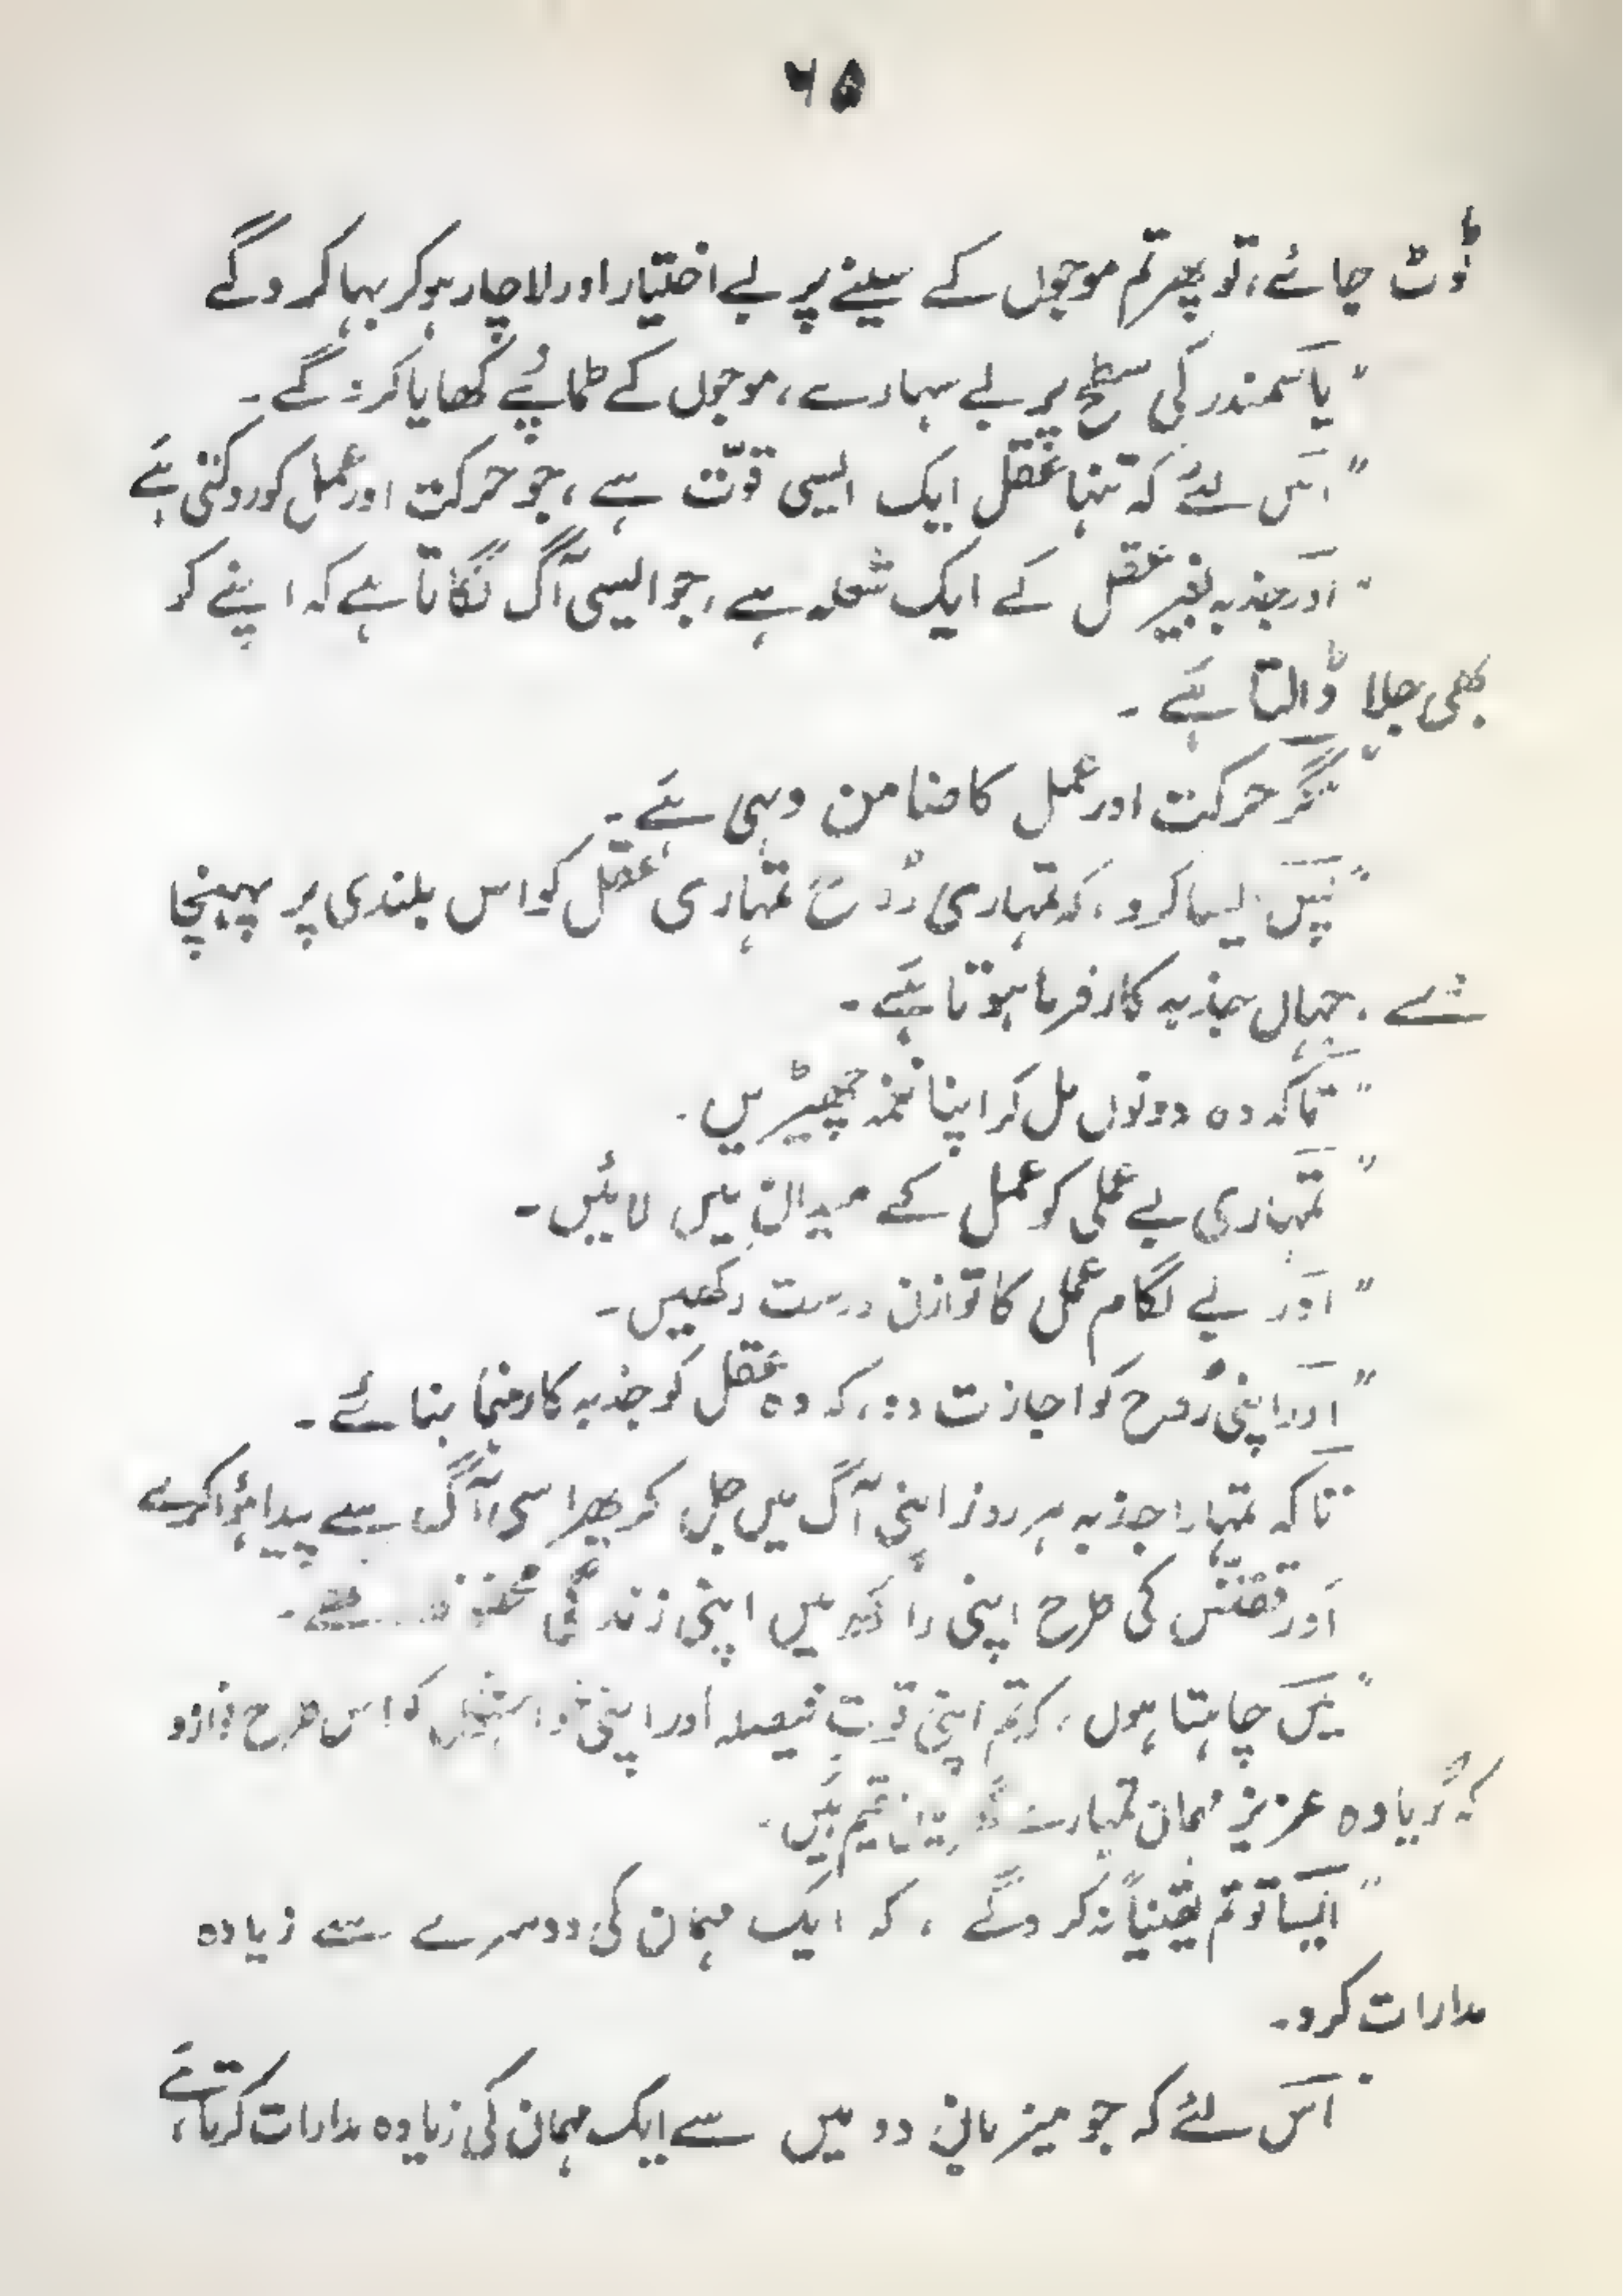 ۶۵
ٹُوٹ جائے، تو پھر تم موجوں کے سینے پر بے اختیار اور لاچار ہو کر بہا کرو گے
"یا سمندر کی سطح پر بے سہارے، موجوں کے طمانچے کھایا کرو گے۔
"اس لئے کہ تنہا عقل ایک ایسی قوّت ہے، جو حرکت اور عمل کو روکتی ہے
"اور جذبہ بغیر عقل کے ایک شعلہ ہے، جو ایسی آگ لگاتا ہے کہ اپنے کو
بھی جلا ڈالتا ہے۔
"مگر حرکت اور عمل کا ضامن وہی ہے۔
"پس ایسا کرو، کہ تمہاری رُوح تمہاری عقل کو اس بلندی پر پہنچا
دے، جہاں جذبہ کارفرما ہوتا ہے۔
"تاکہ وہ دونوں مل کر اپنا نغمہ چھیڑیں۔
"تمہاری بے عملی کو عمل کے میدان میں لائیں۔
"اور بے لگام عمل کا توازن درست رکھیں۔
"اور اپنی رُوح کو اجازت دو، کہ وہ عقل کو جذبہ کا رہنما بنائے۔
"تاکہ تمہارا جذبہ ہر روز اپنی آگ میں جل کر پھر اسی آگ سے پیدا ہؤا کرے
اور ققنس کی طرح اپنی راکھ میں اپنی زندگی محفوظ رکھے۔
"میں چاہتا ہوں، کہ تم اپنی قوتِ فیصلہ اور اپنی خواہشوں کو اس طرح نوازو
کہ گویا وہ عزیز مہمان تمہارے گھر میں مقیم ہیں۔
"ایسا تو تم یقیناً نہ کرو گے، کہ ایک مہمان کی دوسرے سے زیادہ
مدارات کرو۔
"اس لئے کہ جو میزبان دو میں سے ایک مہمان کی زیادہ مدارات کرتا ہے،